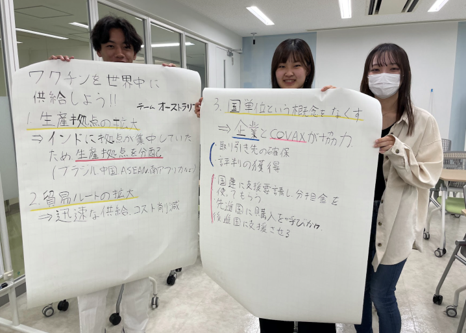 ワクチンを世界中に
供給しよう!!
チーム オーストラリア
1. 生産拠点の拡大
⇒インドに拠点が集中していた
ため生産拠点を分配
(ブラジル、中国、ASEAN、南アフリカ)
2. 貿易ルートの拡大
⇒迅速な供給、コスト削減
3. 国単位という概念をなくす
⇒企業とCOVAXが協力
取り引き先の確保
評判の獲得
国連に支援要請し分担金を
使ってもらう
先進国に購入を呼びかけ
後進国に支援される